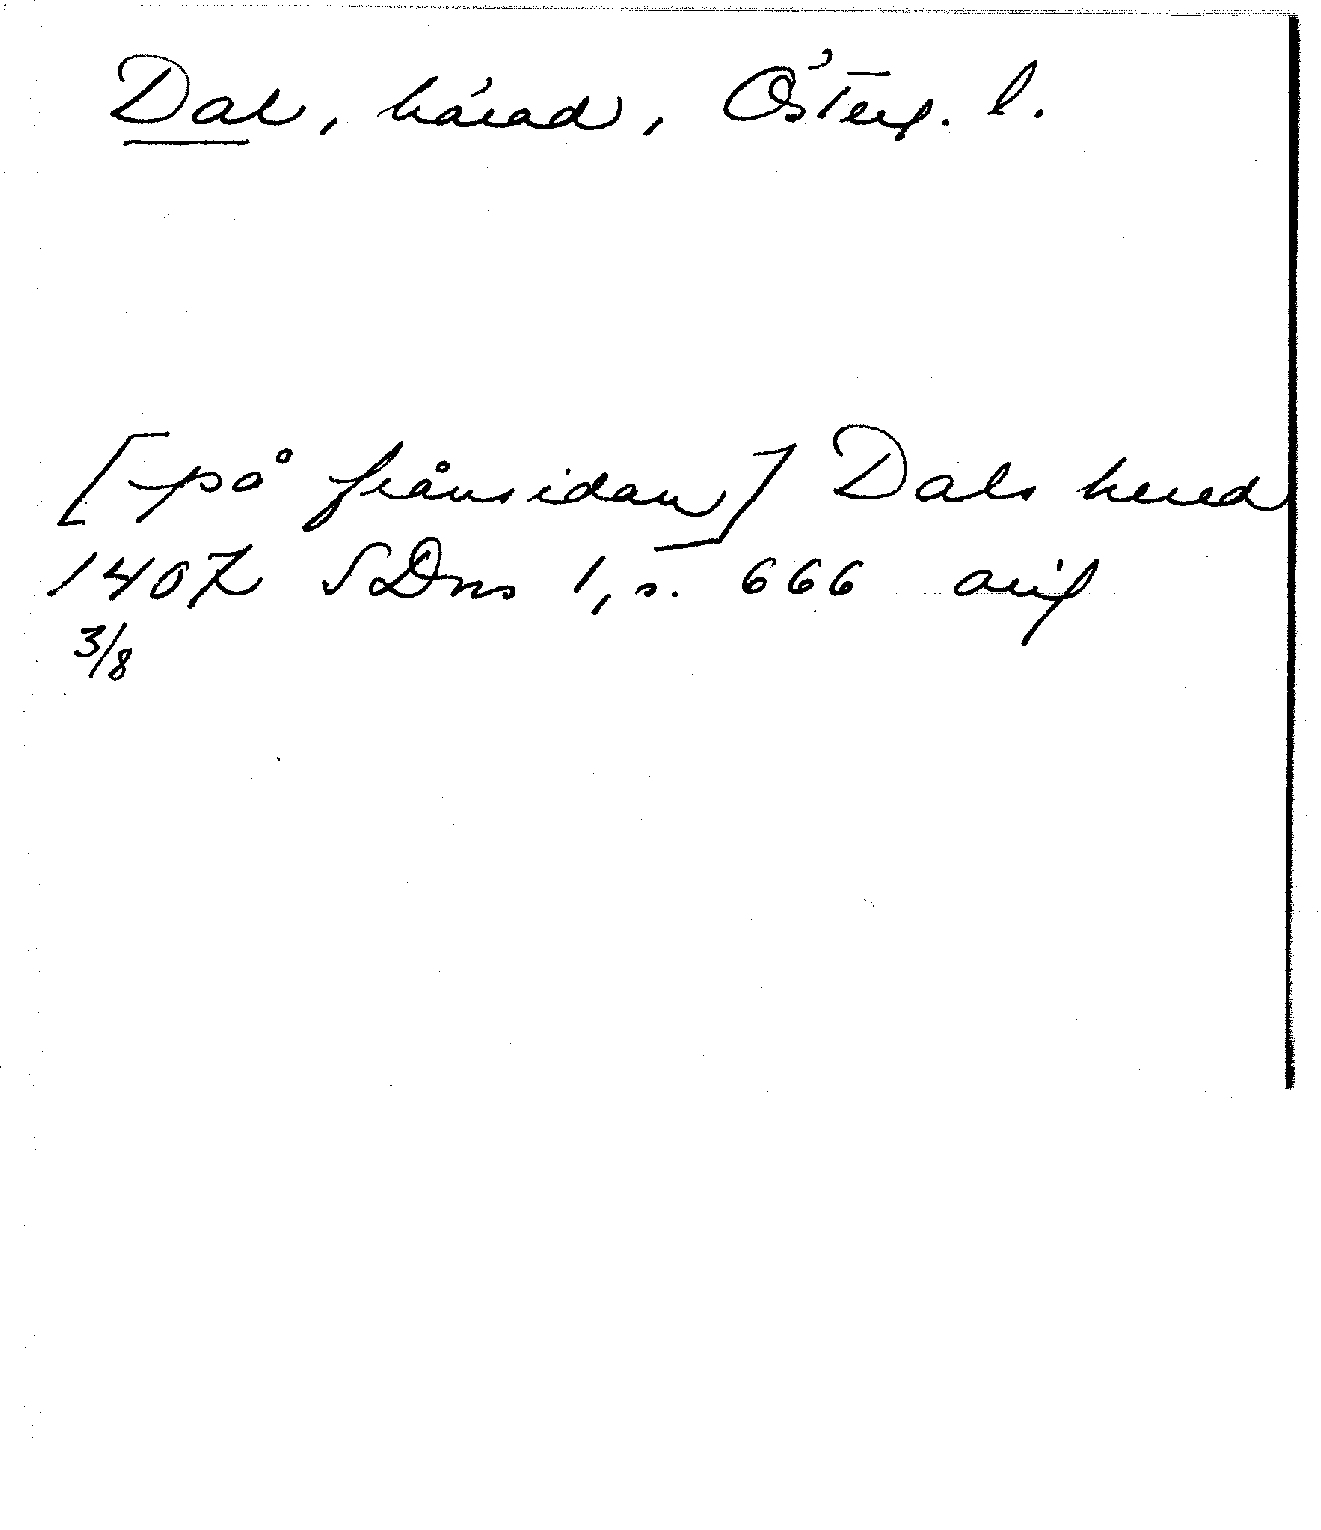 Dal, härad, Österg. l.
[på frånsidan] Dals hered
1407 SDns 1, s. 666 orig
3/8